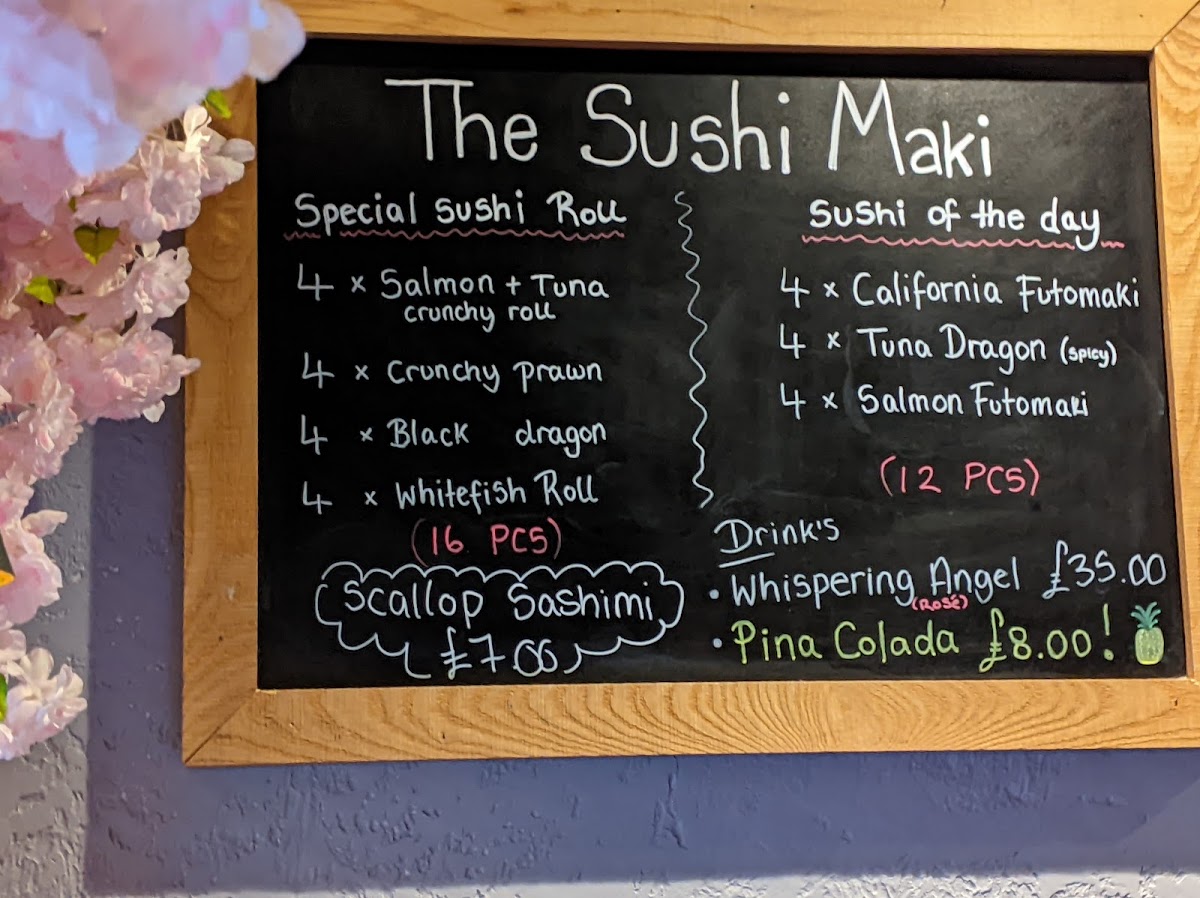 The Sushi Maki
Special sushi Roll
4 x Salmon + Tuna
crunchy roll
4 x Crunchy prawn
4 x Black dragon
4 x Whitefish Roll
(16 PCS)
Scallop Sashimi
£7.00
Sushi of the day
4 x California Futomaki
4 x Tuna Dragon (spicy)
4 x Salmon Futomaki
(12 PCS)
Drink's
• Whispering Angel £35.00
(Rosé)
• Pina Colada £8.00!